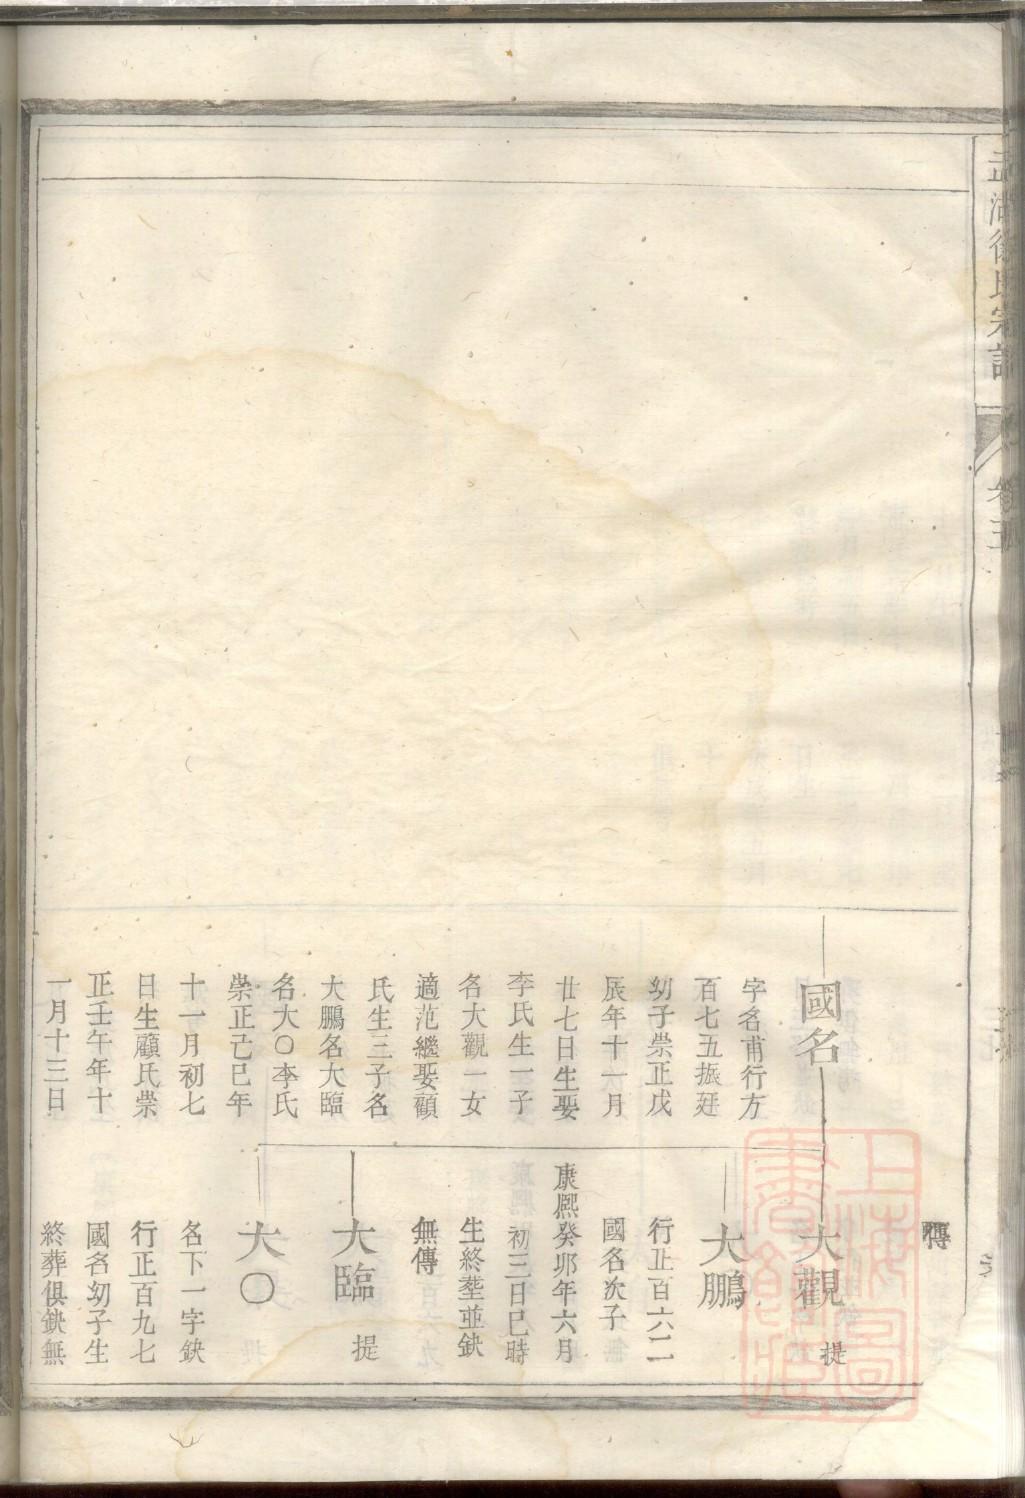 徐氏宗譜
卷五
國名
字名甫行方
百七五振廷
幼子崇正戊
辰年十一月
廿七日生娶
李氏生一子
名大觀一女
適范繼娶顧
氏生三子名
大鵬名大臨
名大〇李氏
崇正己巳年
十一月初七
日生顧氏崇
正壬午年十
一月十三日
傳
大觀
提
大鵬
行正百六二
國名次子
康熙癸卯年六月
初三日巳時
生終塟並缺
無傳
大臨
提
大〇
名下一字缺
行正百九七
國名幼子生
終葬俱缺無
上海圖書館藏